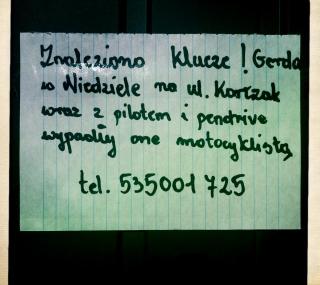 Znaleziono klucze! Gerda
w Niedziele na ul. Korczak
wraz z pilotem i pendrive
wypadły one motocyklistą
tel. 535001725